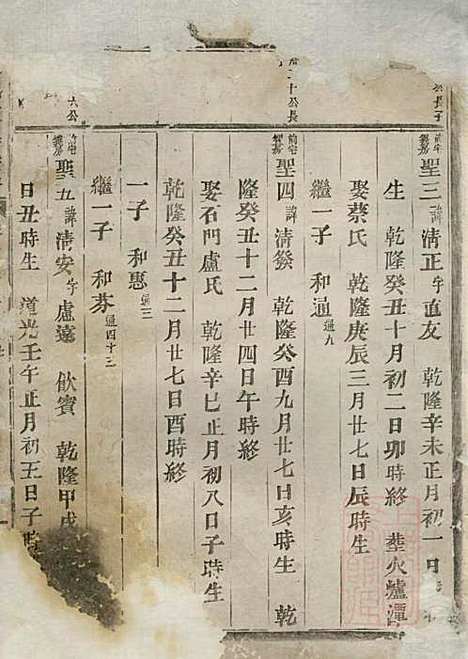 公長子
前宅聖三諱清正字直友 乾隆辛未正月初一日
生 乾隆癸丑十月初二日卯時終 塟火爐潭
娶蔡氏 乾隆庚辰三月廿七日辰時生
繼一子 和通通九
二十公長
前宅聖四諱清發 乾隆癸酉九月廿七日亥時生 乾
隆癸丑十二月廿四日午時終
娶石門盧氏 乾隆辛巳正月初八日子時生
乾隆癸丑十二月廿七日酉時終
一子 和惠通三
繼一子 和芬通四十三
六公
聖五諱清安字盧遠 飲賓 乾隆甲戌
日丑時生 道光壬午正月初五日子時